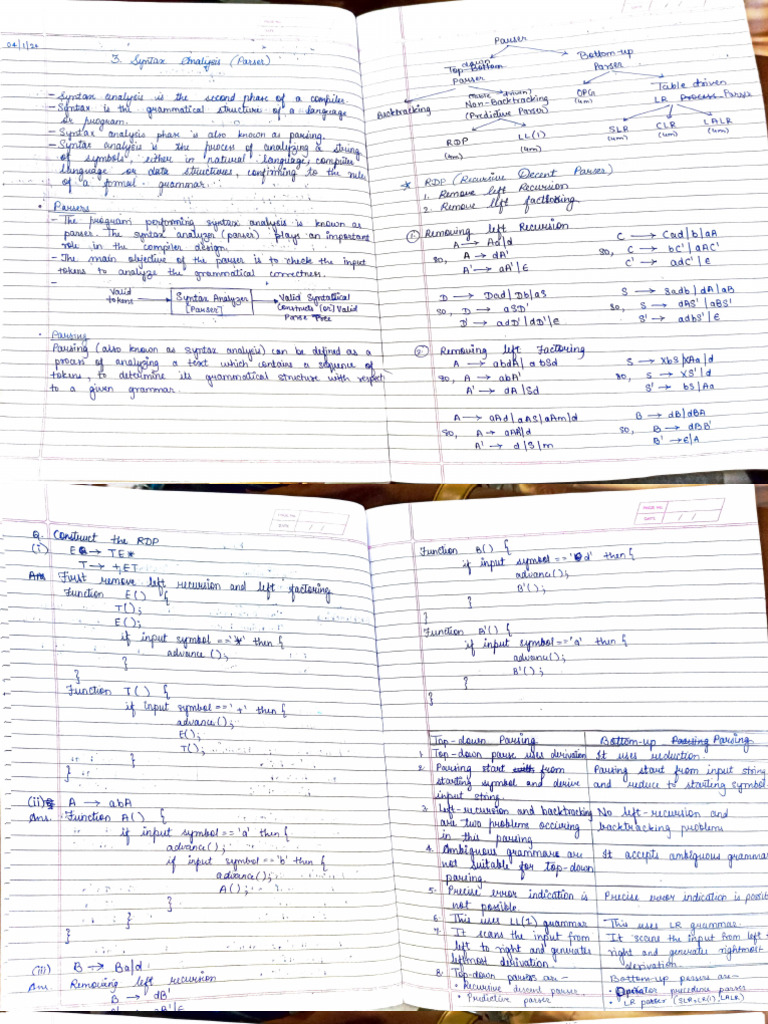 04/1/24
3. Syntax Analysis (Parser)
- Syntax analysis is the second phase of a compiler.
- Syntax is the grammatical structure of a language
or program.
- Syntax analysis phase is also known as parsing.
- Syntax analysis is the process of analyzing a string
of symbols, either in natural language, computer
language or data structures, confirming to the rules
of a formal grammar.
• Parsers
- The program performing syntax analysis is known as
parser. The syntax analyzer (parser) plays an important
role in the compiler design.
- The main objective of the parser is to check the input
tokens to analyze the grammatical correctness.
-
Valid tokens → Syntax Analyzer [Parser] → Valid Syntatical Constructs [or] Valid Parse Tree
• Parsing
Parsing (also known as syntax analysis) can be defined as a
process of analyzing a text which contains a sequence of
tokens, to determine its grammatical structure with respect
to a given grammar.
Parser
Top-down Bottom Parser
Bottom-up Parser
Backtracking
Non-Backtracking
(Predictive Parser)
OPG
(4m)
Table driven
LR Process Parser
RDP
(4m)
LL(1)
(4m)
SLR
(4m)
CLR
(4m)
LALR
(4m)
* RDP (Recursive Decent Parser)
1. Remove left Recursion
2. Remove left factoring
① Removing left Recursion
A → Aa|d
so, A → dA'
A' → aA'|ε
C → Cad|b|aA
so, C → bC'|aAC'
C' → adC'|ε
D → Dad|Db|aS
so, D → aSD'
D' → adD'|dD'|ε
S → Sadb|dA|aB
so, S → dAS'|aBS'
S' → adbS'|ε
② Removing left Factoring
A → abdA|abSd
so, A → abA'
A' → dA|Sd
S → XbS|XAa|d
so, S → XS'|d
S' → bS|Aa
A → aAd|aAS|aAm|d
so, A → aAA'|d
A' → d|S|m
B → dB|dBA
so, B → dBB'
B' → ε|A
PAGE NO.
DATE / /
Q. Construct the RDP
(i) E → TE*
T → +,ET
Ans First remove left recursion and left factoring
Function E() {
T();
E();
if input symbol =='*' then {
advance();
}
}
Function T() {
if input symbol =='+' then {
advance();
E();
T();
}
}
(ii) A → abA
Ans. Function A() {
if input symbol =='a' then {
advance();
if input symbol =='b' then {
advance();
A();
}
}
}
(iii) B → Ba|d
Ans Removing left recursion
B → dB'
B' → aB'|ε
PAGE NO.
DATE / /
Function B() {
if input symbol =='d' then {
advance();
B'();
}
}
Function B'() {
if input symbol =='a' then {
advance();
B'();
}
}
Top-down Parsing | Bottom-up Parsing Parsing
1. Top-down parse uses derivation | It uses reduction.
2. Parsing start with from starting symbol and derive input string. | Parsing start from input string and reduce to starting symbol.
3. Left-recursion and backtracking are two problems occuring in this parsing | No left-recursion and backtracking problems
4. Ambiguous grammars are not suitable for top-down parsing. | It accepts ambiguous grammar
5. Precise error indication is not possible | Precise error indication is
6. This uses LL(1) grammar | This uses LR grammar.
7. It scans the input from left to right and generates leftmost derivation. | It scans the input from left right and generates rightmost derivation.
8. Top-down parsers are - | Bottom-up parsers are -
• Recursive descent parser | • Operator precedence parser
• Predictive parser | • LR parser (SLR, LR(1), LALR)